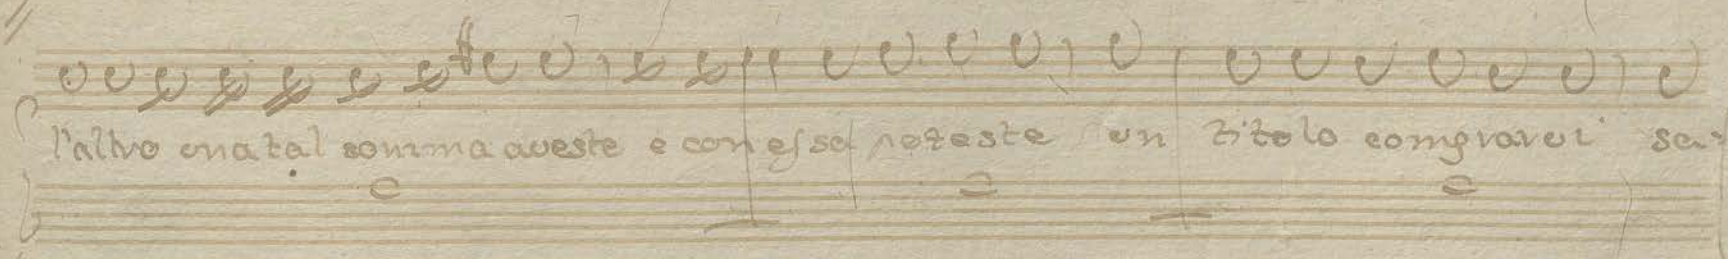 l'altro una tal somma aveste e con essa poteste un titolo comprarvi sen